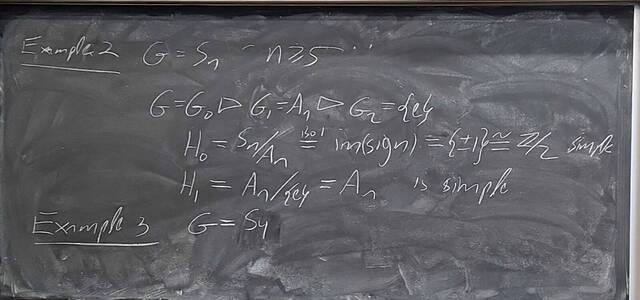 Example 2 G = Sₙ n ≥ 5
G = G₀ ▷ G₁ = Aₙ ▷ G₂ = {e}
H₀ = Sₙ/Aₙ ≅ im(sign) = {±1} ≅ ℤ/2 simple
H₁ = Aₙ/{e} = Aₙ is simple
Example 3 G = S₄